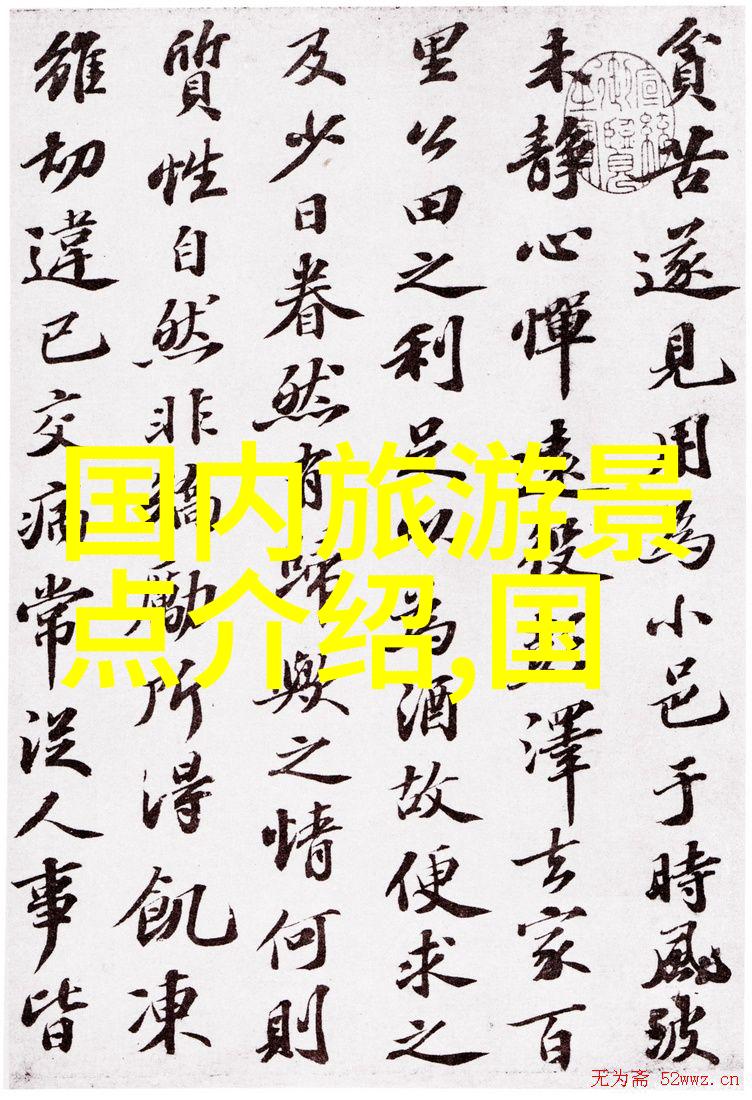 貧苦遂見用為小邑于時風波
未靜心憚遠役彭澤去家百
里公田之利足以為酒故便求之
及少日眷然有歸歟之情何則
質性自然非矯勵所得飢凍
雖切違已交病常從人事皆
国内旅游景
点介绍,国
无为斋 52wwz.cn